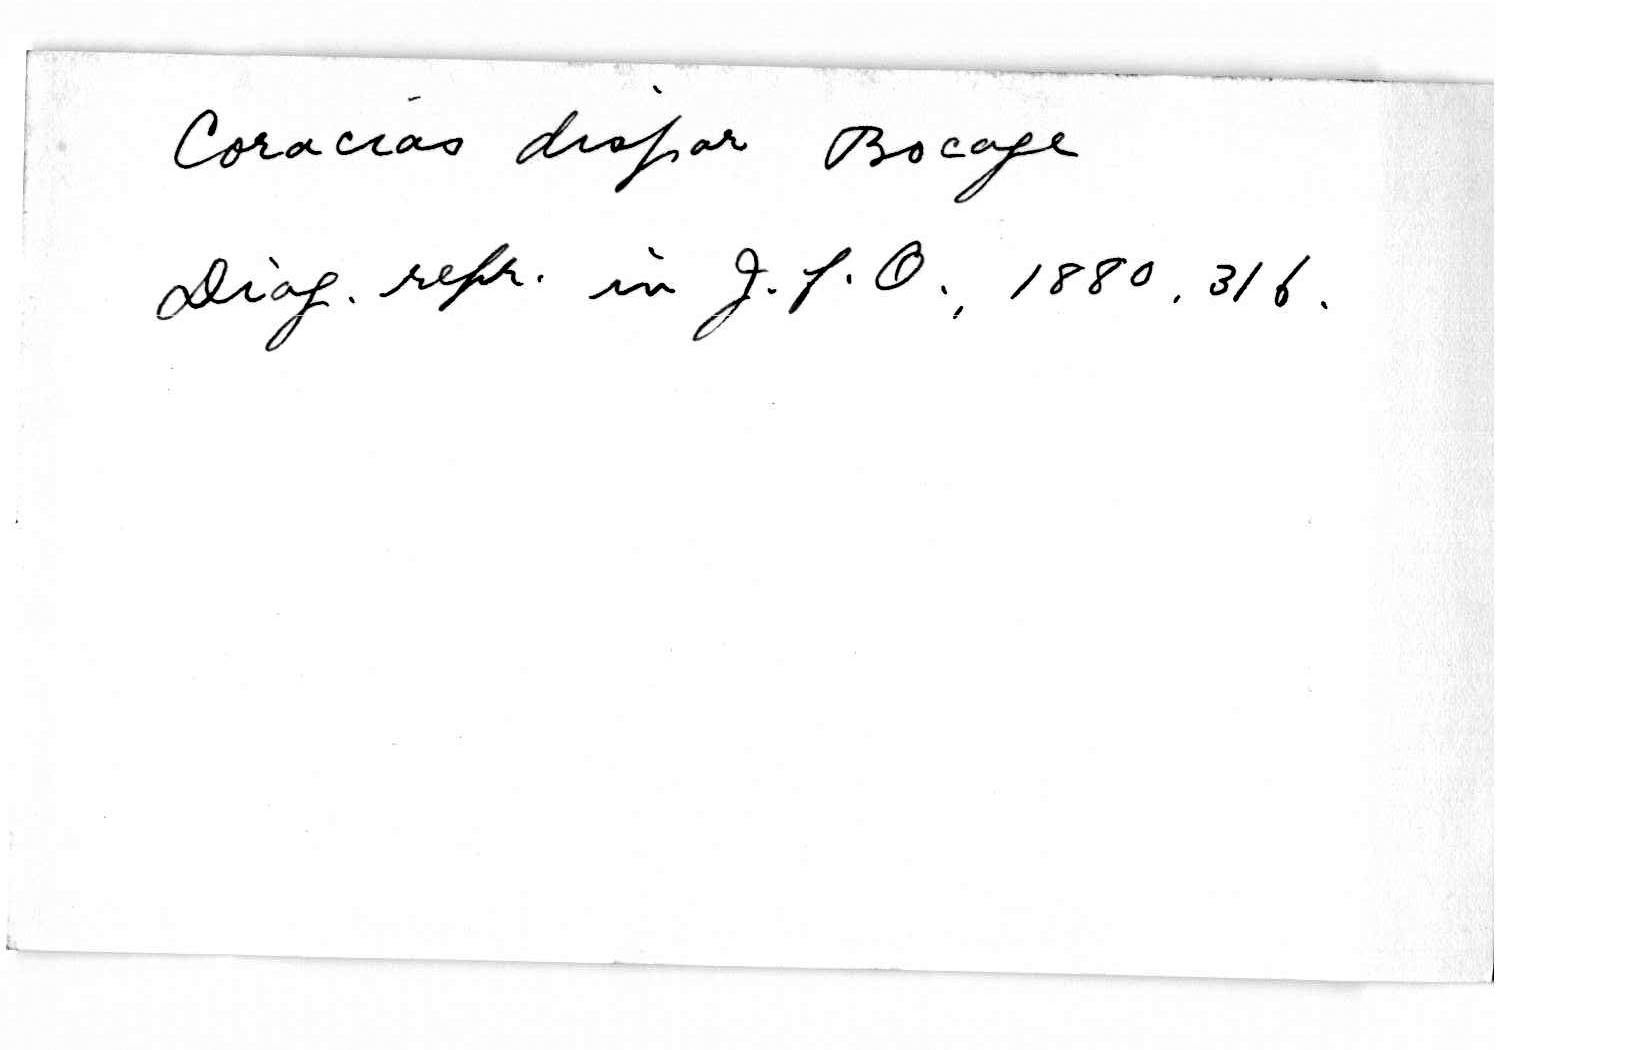 Coracias dispar Bocage
Diag. repr. in J. f. O., 1880, 316.